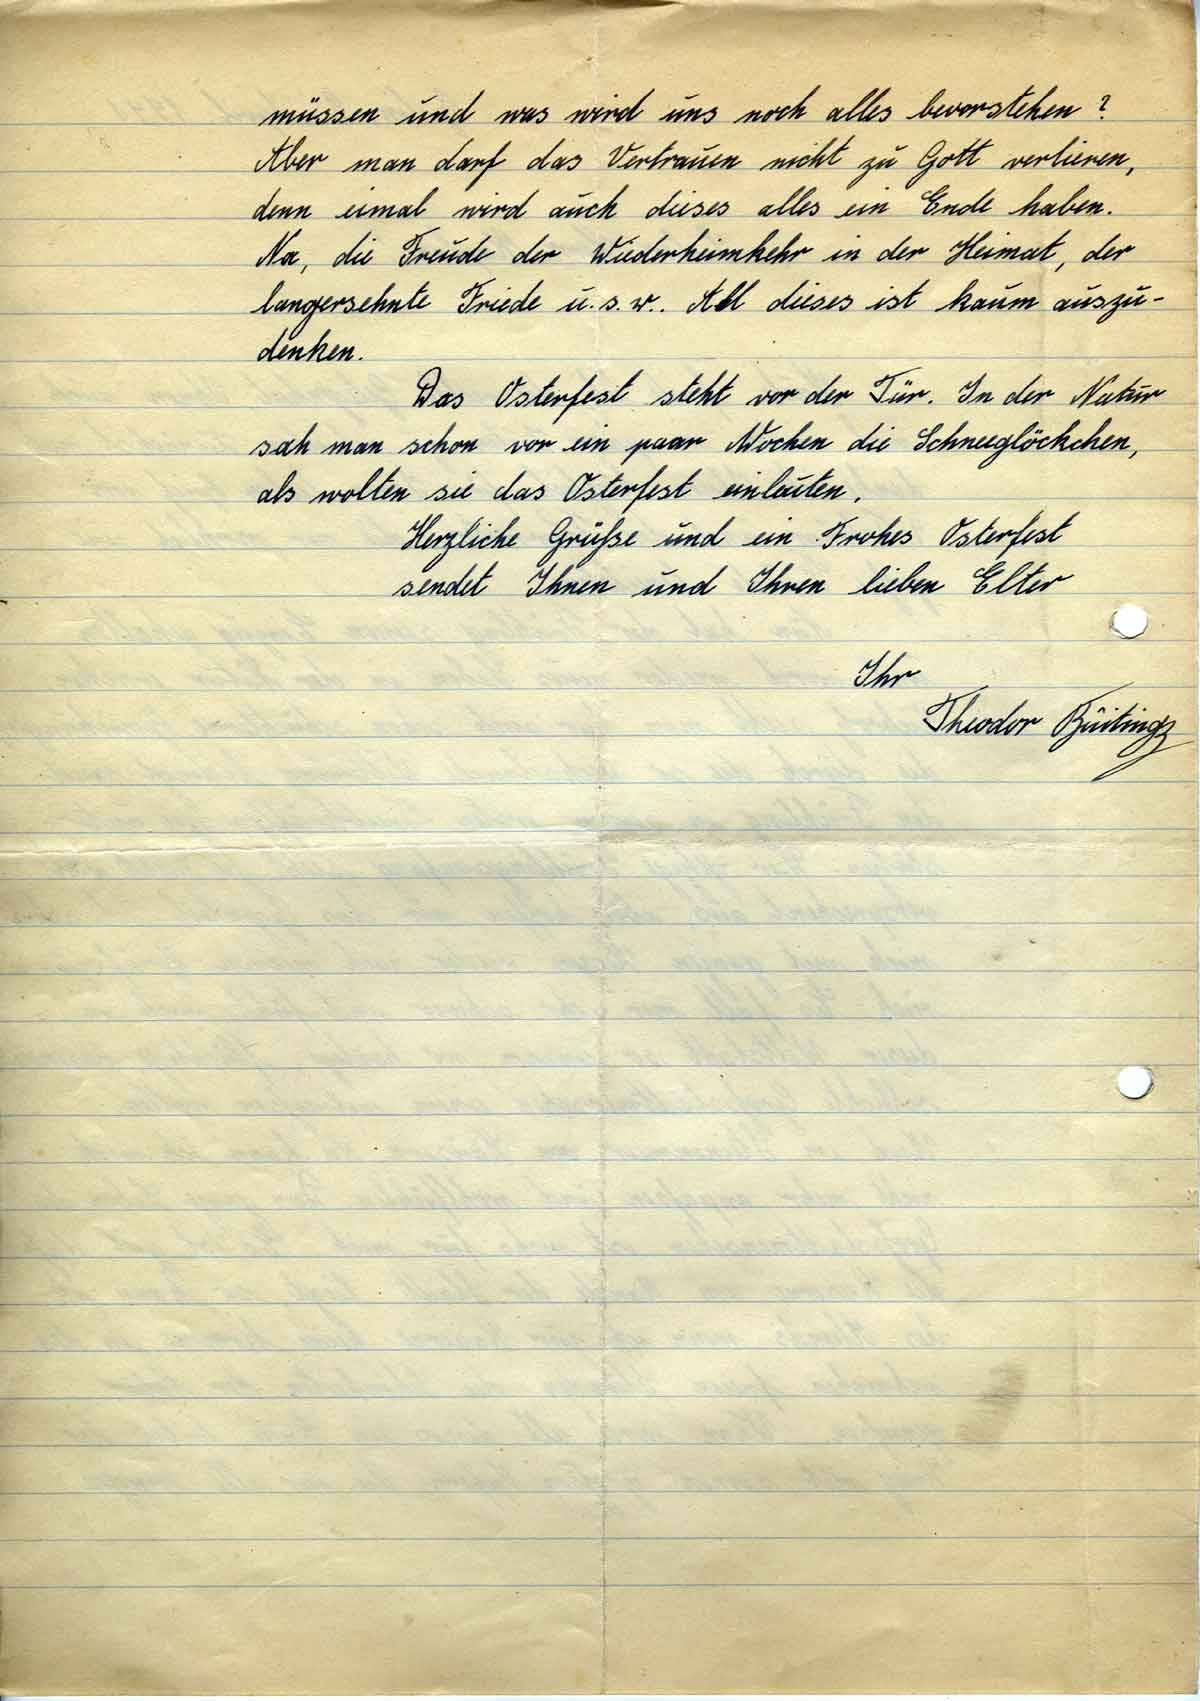 müssen und was wird uns noch alles bevorstehen?
Aber man darf das Vertrauen nicht zu Gott verlieren,
denn eimal wird auch dieses alles ein Ende haben.
Na, die Freude der Wiederheimkehr in der Heimat, der
langersehnte Friede u.s.w.. All dieses ist kaum auszu-
denken.
Das Osterfest steht vor der Tür. In der Natur
sah man schon vor ein paar Wochen die Schneeglöckchen,
als wolten sie das Osterfest einläuten.
Herzliche Grüße und ein Frohes Osterfest
sendet Ihnen und Ihren lieben Elter
Ihr
Theodor